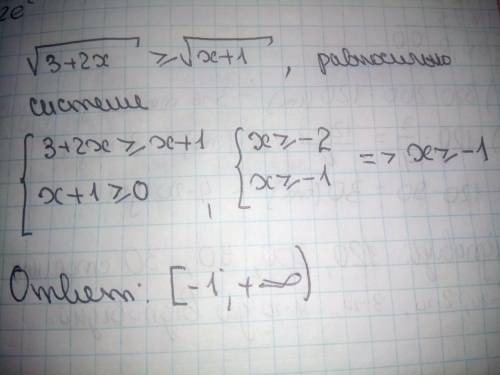 √3+2x ≥ √x+1, равносильно
системе
{3+2x ≥ x+1 {x ≥ -2 => x ≥ -1
x+1 ≥ 0, x ≥ -1
Ответ: [-1; +∞)